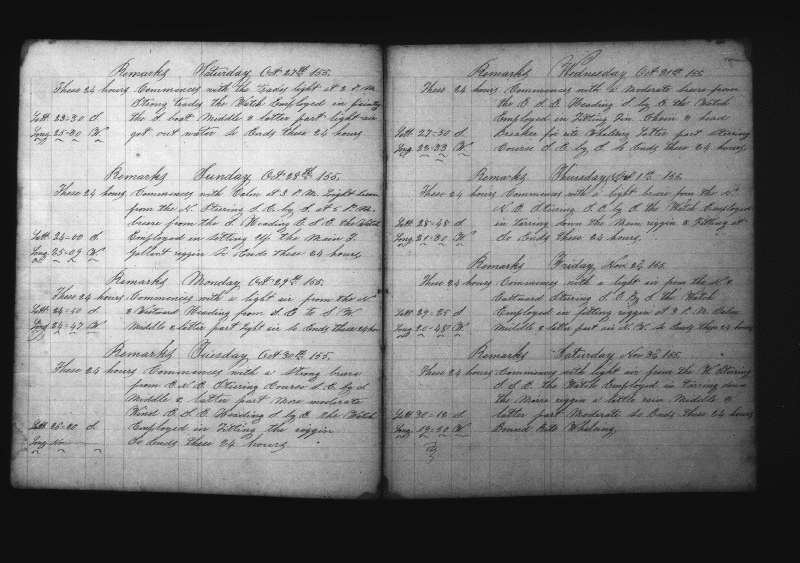 Remarks Saturday Oct 27th 155.
These 24 hours Commences with the Trades light at 2 P M
String Trades the Watch Employed in painting
Latt 23-30 S. the S boat Middle & latter part light air
Long 25-30 W. got out water So Ends these 24 hours
Remarks Sunday Oct 28th 155.
These 24 hours Commences with Calm at 3 P. M. Light breeze
from the N. Steering S.E. by S. at 5 P. M.
breeze from the S. Heading E. S. E. the Watch
Latt 24-00 S. Employed in fitting up the Main T.
Long 25-09 W. Gallent riggin So Ends these 24 hours
Remarks Monday Oct 29th 155.
These 24 hours Commences with a light air from the N.
Latt 24-50 S. & Westward Heading from S. E. to S. W.
Long 24-47 W. Middle & latter part light air So Ends these 24 hours
Remarks Tuesday Oct 30th 155.
These 24 hours Commences with a Strong breeze
from E. N. E. Stering Course S. E. by S.
Middle & latter part More moderate
Wind E. S. E. Heading S by E. the Watch
Latt 26-20 S. Employed in Fitting the riggin
Long No So Ends these 24 hours
Remarks Wednesday Oct 31th 155
These 24 hours Commences with a Moderate breeze from
the E. S. E. Heading S by E. the Watch
Employed in Fitting
Latt 27-30 S. Latter part Stering
Long 22-33 W. Course S. E. by S. So Ends these 24 hours
Remarks Thursday Oct 1th 155.
These 24 hours Commences with a light breese from the N.
N. E. Stering S. E. by S. the Watch Employed
Latt 28-48 S. in Tarring down the Main riggin & Fitting it
Long 21-30 W. So Ends these 24 hours.
Remarks Friday Nov 2th 155.
These 24 hours Commences with a light air from the N. &
Eastward Stering S. E. by S. the Watch
Latt 29-25 S. Employed in fitting riggin at 3 P. M. Calm
Long 20-48 W. Middle & latter part air N. W. So Ends these 24 hours
Remarks Saturday Nov 3th 155.
These 24 hours Commences with light air from the W. Stering
S. S. E. the Watch Employed in Tarring down
the Main riggin a little rain Middle &
Latt 30-18 S. latter part Moderate So Ends these 24 hours
Long 19-30 W. Bound Rite Whaling.